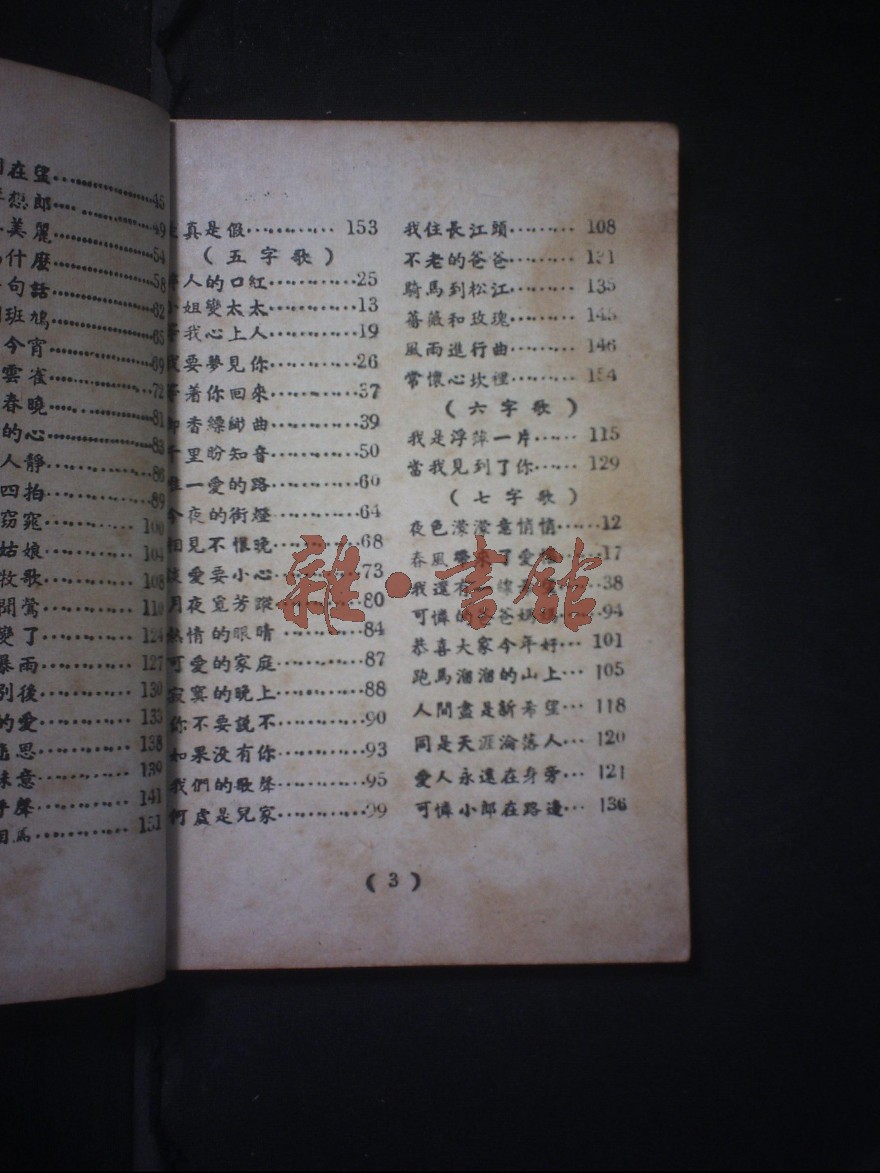 在望 45
戀郎 49
美麗 54
什麼 58
句話 62
班鳩 65
今宵 69
雲雀 72
春曉 81
的心 83
人靜 86
四拍 89
窈窕 100
姑娘 104
牧歌 108
聞鶯 110
變了 124
暴雨 127
別後 130
的愛 133
思 138
意 139
聲 141
151
真是假 153
(五字歌)
人的口紅 25
姐變太太 13
我心上人 19
要夢見你 26
着你回來 37
香縹緲曲 39
里盼知音 50
一愛的路 60
今夜的街燈 64
相見不恨晚 68
談愛要小心 73
月夜覓芳蹤 80
熱情的眼睛 84
可愛的家庭 87
寂寞的晚上 88
你不要說不 90
如果沒有你 93
我們的歌聲 95
何處是兒家 99
我住長江頭 108
不老的爸爸 131
騎馬到松江 135
薔薇和玫瑰 145
風雨進行曲 146
常懷心坎裡 154
(六字歌)
我是浮萍一片 115
當我見到了你 129
(七字歌)
夜色濛濛意悄悄 12
春風 了愛 17
我還有 38
可憐的爸爸媽媽 94
恭喜大家今年好 101
跑馬溜溜的山上 105
人間盡是新希望 118
同是天涯淪落人 120
愛人永遠在身旁 121
可憐小郎在路邊 136
(3)
雜·書館